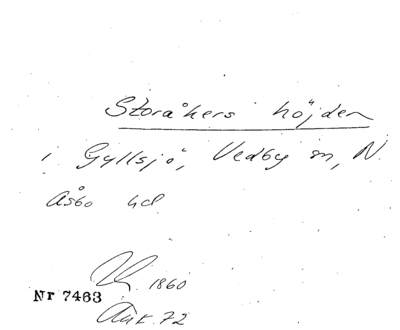 Storåkers höjden
i Gyllsjö, Vedby sn, N.
Åsbo hd
1860
Nr 7463
Ank. 72